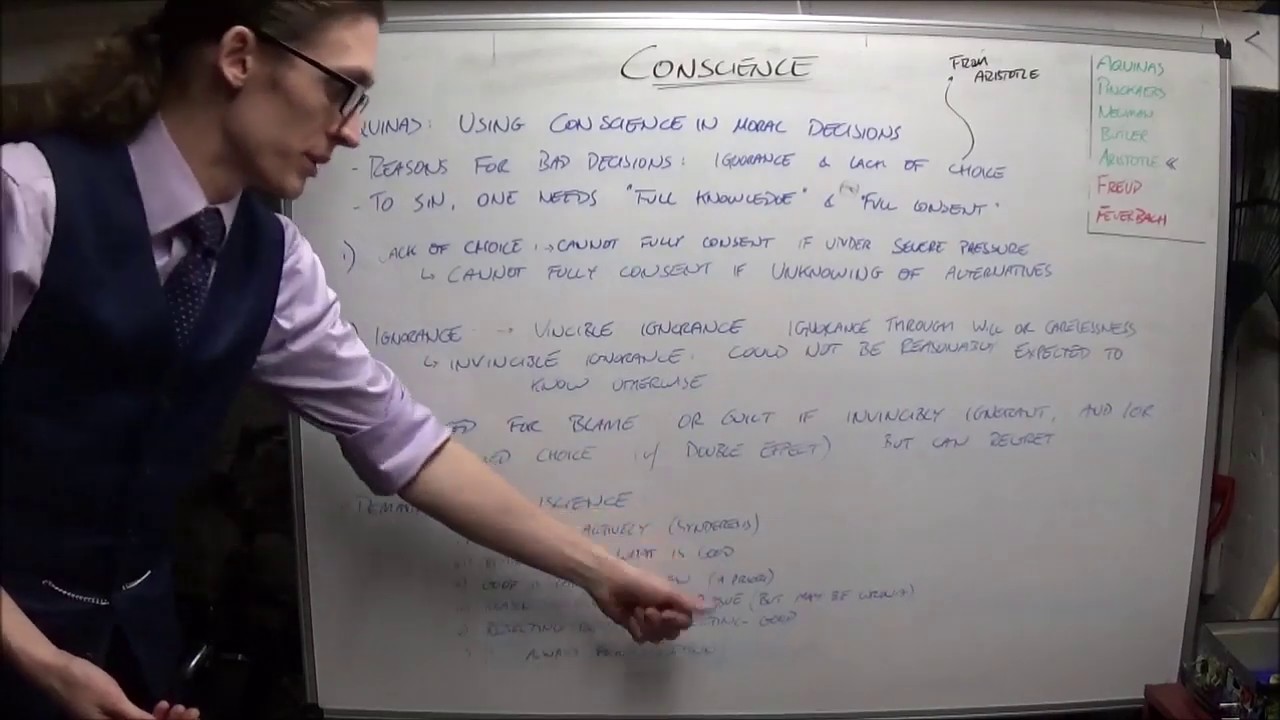 CONSCIENCE
FROM
ARISTOTLE
AQUINAS
PINCKAERS
NEWMAN
BUTLER
ARISTOTLE «
FREUD
FEUERBACH
QUINAS: USING CONSCIENCE IN MORAL DECISIONS
- REASONS FOR BAD DECISIONS: IGNORANCE & LACK OF CHOICE
- TO SIN, ONE NEEDS "FULL KNOWLEDGE" & "FULL CONSENT"
i) LACK OF CHOICE: → CANNOT FULLY CONSENT IF UNDER SEVERE PRESSURE
↳ CANNOT FULLY CONSENT IF UNKNOWING OF ALTERNATIVES
) IGNORANCE → VINCIBLE IGNORANCE IGNORANCE THROUGH WILL OR CARELESSNESS
↳ INVINCIBLE IGNORANCE: COULD NOT BE REASONABLY EXPECTED TO
KNOW OTHERWISE
ED FOR BLAME OR GUILT IF INVINCIBLY IGNORANT, AND/OR
ED CHOICE (i/ DOUBLE EFFECT) BUT CAN REGRET
SCIENCE
ACTIVELY (SYNDERESIS)
WHAT IS GOOD
(A PRIORI)
(BUT MAY BE WRONG)
REJECTING GOOD
ALWAYS